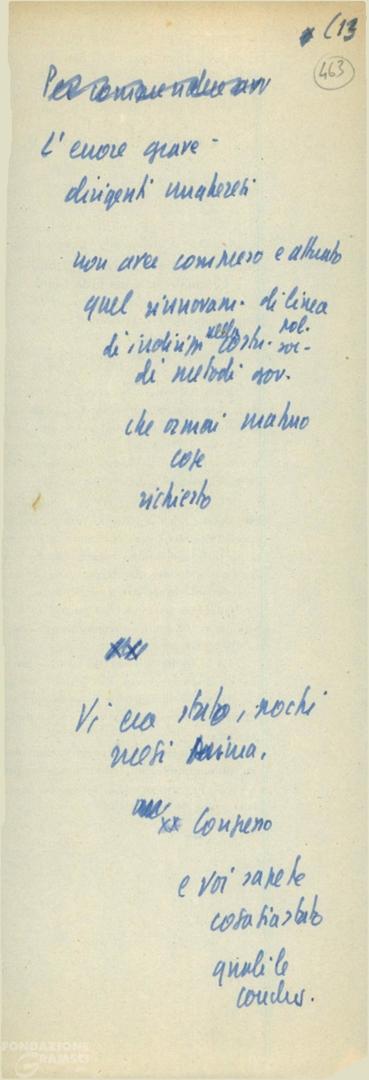 (13
463
L'errore grave -
dirigenti
non aver compreso e attuato
quel rinnovam. di linea
di indirizzi nella pol.
di metodi gov.
che ormai
cose
richiesto
XX
Vi era stato, pochi
mesi prima,
XX Congresso
e voi sapete
cosa sia stato
quali le
conclus.
FONDAZIONE
GRAMSCI